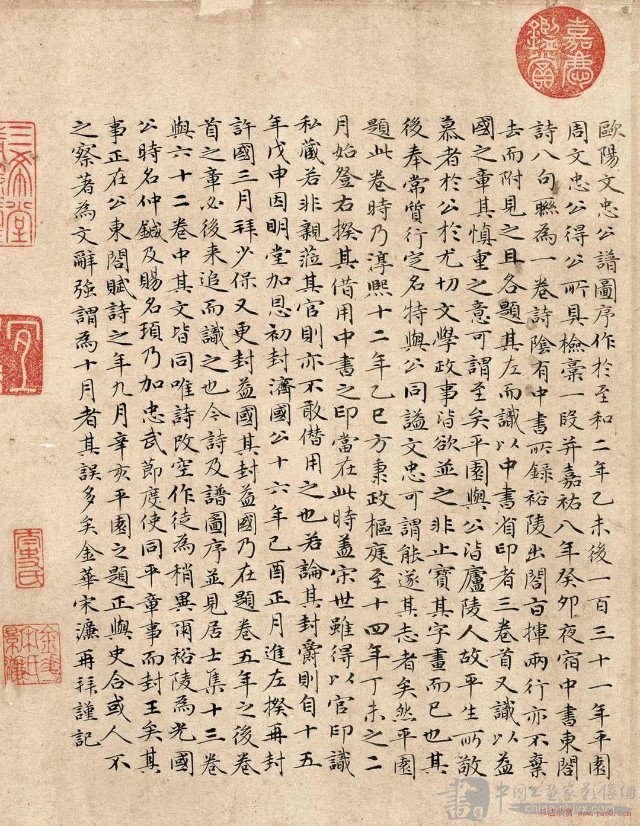 歐陽文忠公譜圖序作於至和二年乙未後一百三十一年平園
周文忠公得公所具檢稾一段并嘉祐八年癸卯夜宿中書東閤
詩八句聮為一卷詩陰有中書所錄裕陵出閤百揮兩行亦不棄
去而附見之且各題其左而識以中書省印者三卷首又識以益
國之章其慎重之意可謂至矣平園與公皆廬陵人故平生所敬
慕者於公於尤切文學政事皆欲並之非止寶其字畫而已也其
後奉常質行定名特與公同謚文忠可謂能遂其志者矣然平園
題此卷時乃淳熙十二年乙巳方秉政樞庭至十四年丁未之二
月始登右揆其借用中書之印當在此時盖宋世雖得以官印識
私藏若非親蒞其官則亦不敢僭用之也若論其封爵則自十五
年戊申因明堂加恩初封濟國公十六年己酉正月進左揆再封
許國三月拜少保又更封益國其封益國乃在題卷五年之後卷
首之章必後来追而識之也今詩及譜圖序並見居士集十三卷
與六十二卷中其文皆同唯詩改空作徒為稍異爾裕陵為光國
公時名仲鍼及賜名頊乃加忠武節度使同平章事而封王矣其
事正在公東閤賦詩之年九月辛亥平園之題正與史合或人不
之察著為文辭強謂為十月者其誤多矣金華宋濂再拜謹記
嘉慶鑑賞
三希堂
宜
中国工艺家影像網